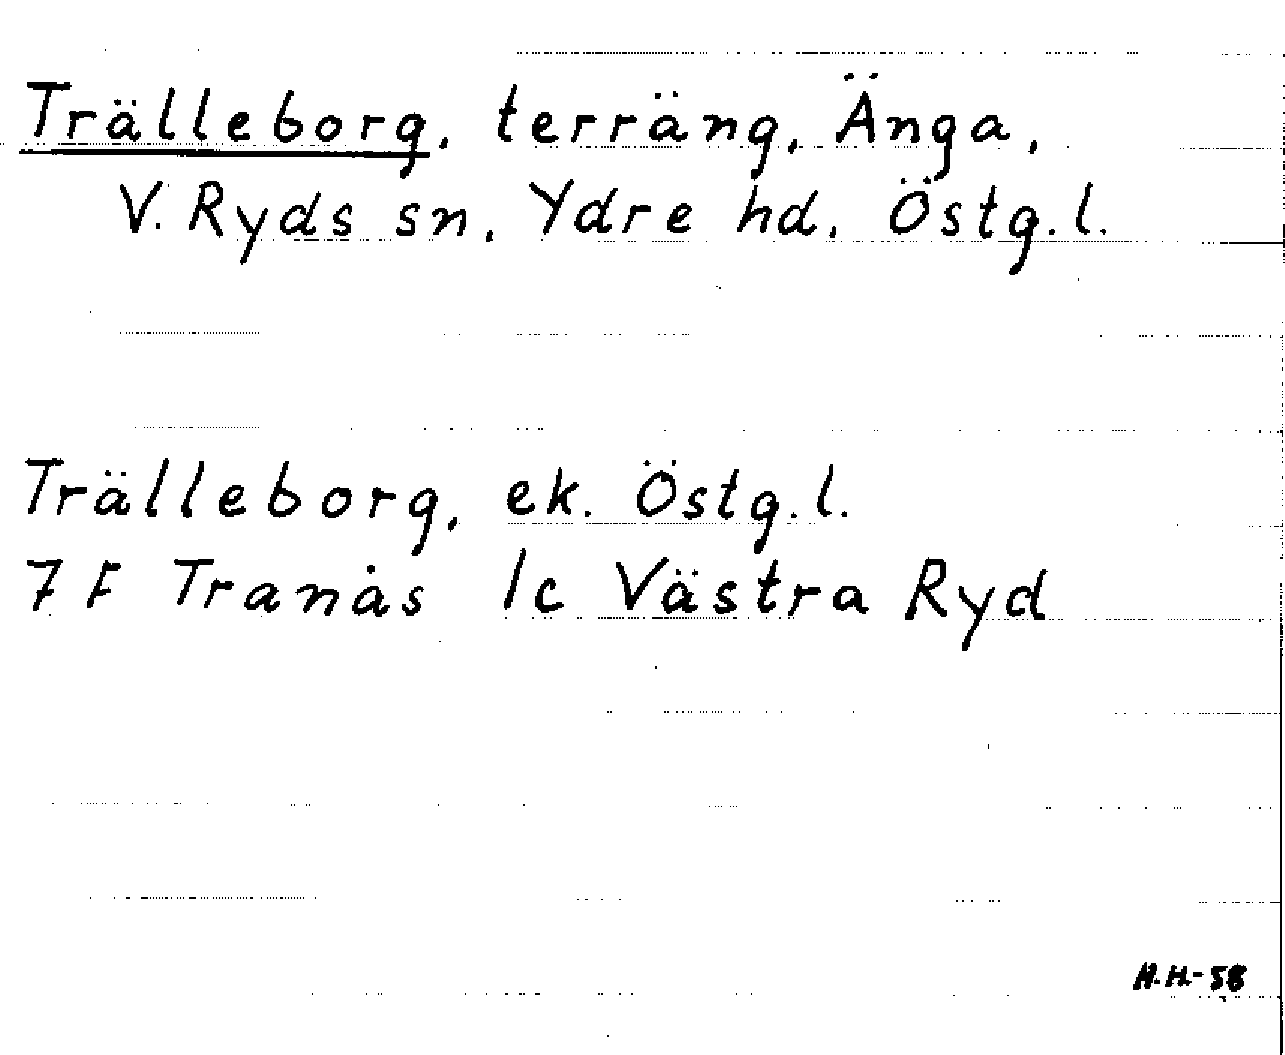 Trälleborg, terräng, Änga,
V. Ryds sn, Ydre hd, Östg.l.
Trälleborg, ek. Östg.l.
7F Tranås 1c Västra Ryd
A.H.-58